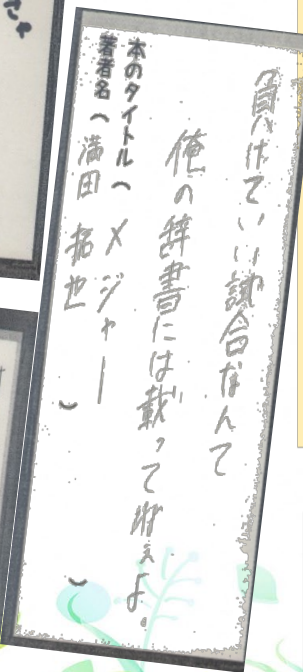 負けていい試合なんて
俺の辞書には載ってねぇよ。
本のタイトル（メジャー）
著者名（満田 拓也）